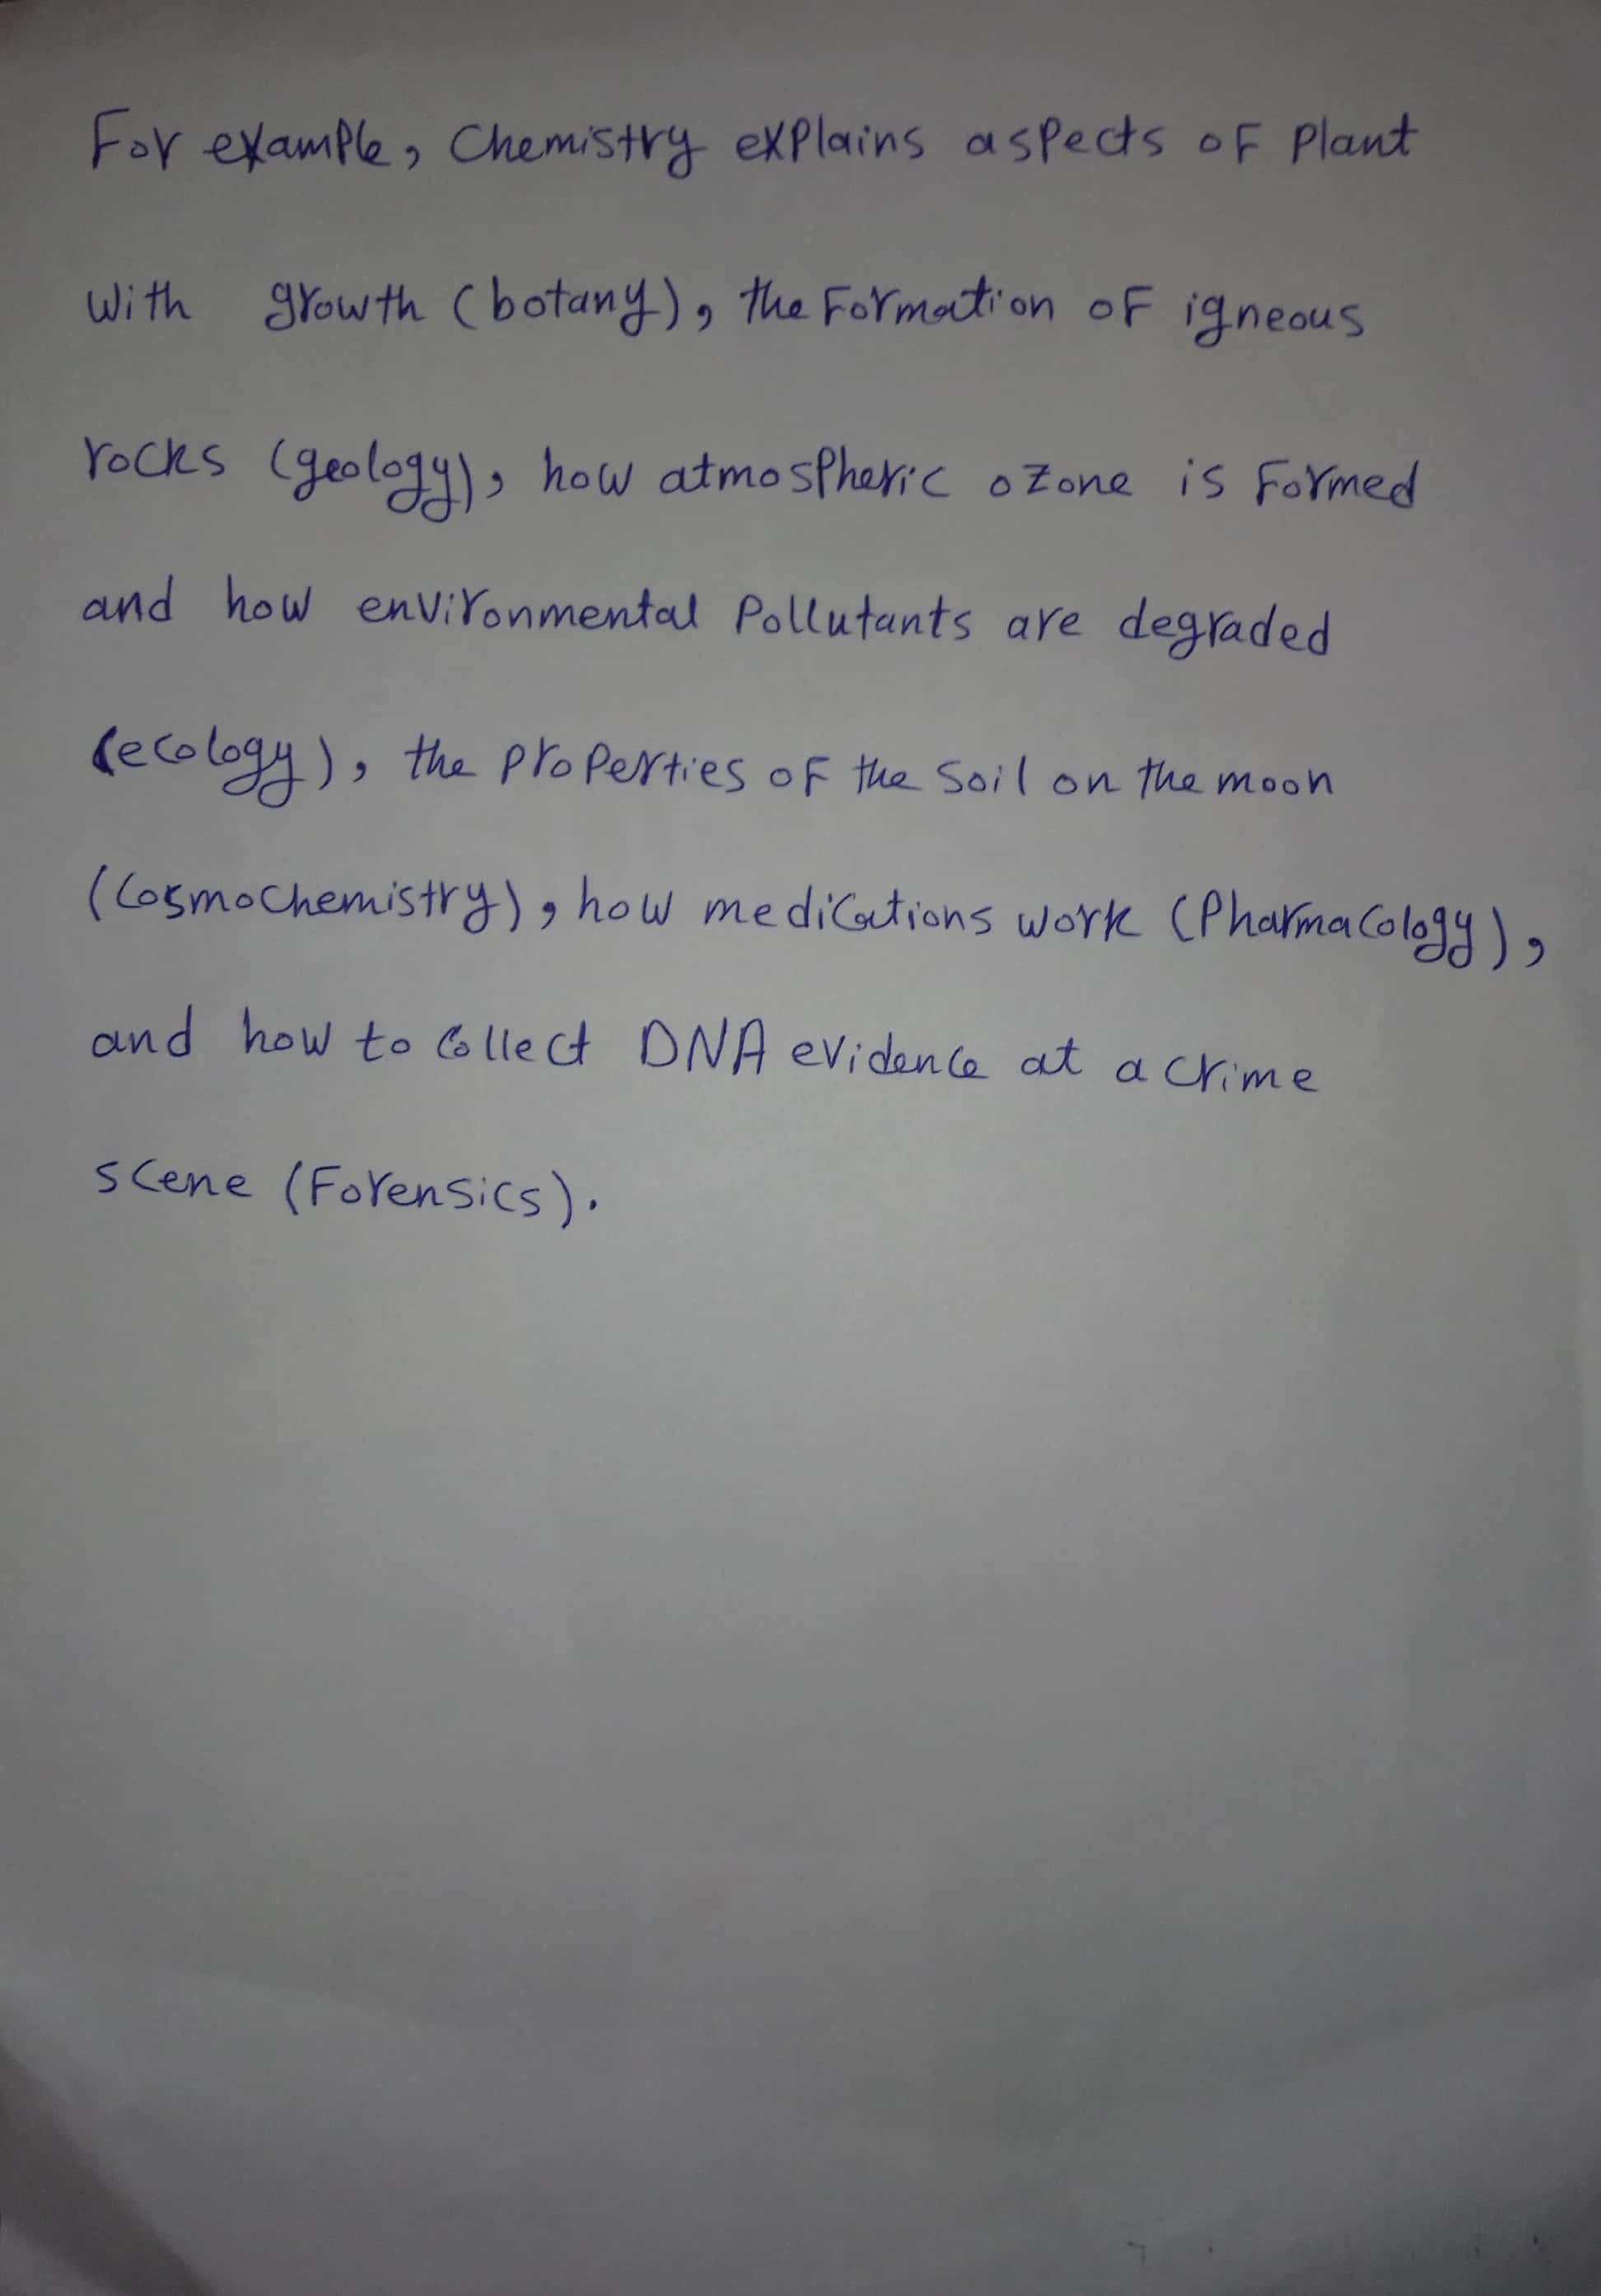 For example, Chemistry explains aspects of Plant
With growth (botany), the Formation of igneous
rocks (geology), how atmospheric ozone is Formed
and how environmental Pollutants are degraded
(ecology), the properties of the Soil on the moon
(Cosmochemistry), how medications work (Pharmacology),
and how to collect DNA evidence at a crime
scene (Forensics).